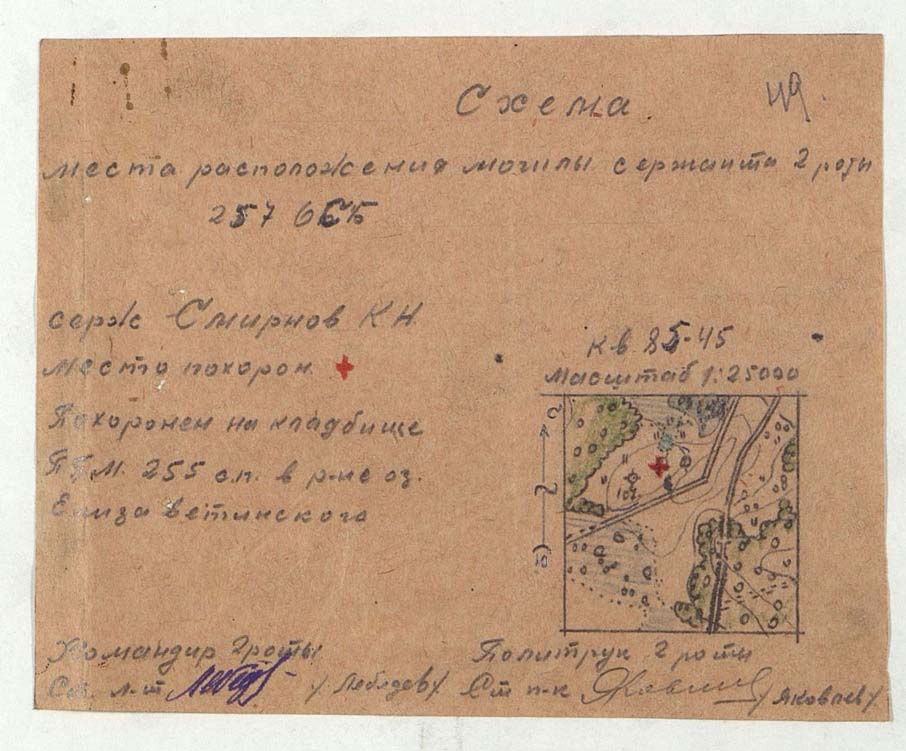 Схема
49.
места расположения могилы сержанта 2 роты
257 ОСБ
серж Смирнов К.Н.
место похорон
Похоронен на кладбище
255 с.п. в р-не оз.
Елизаветинского
кв. 85-45
Масштаб 1:25000
Командир 2 роты
Ст. л-т /Лебедев/
Политрук 2 роты
Ст п-к /Яковлев/